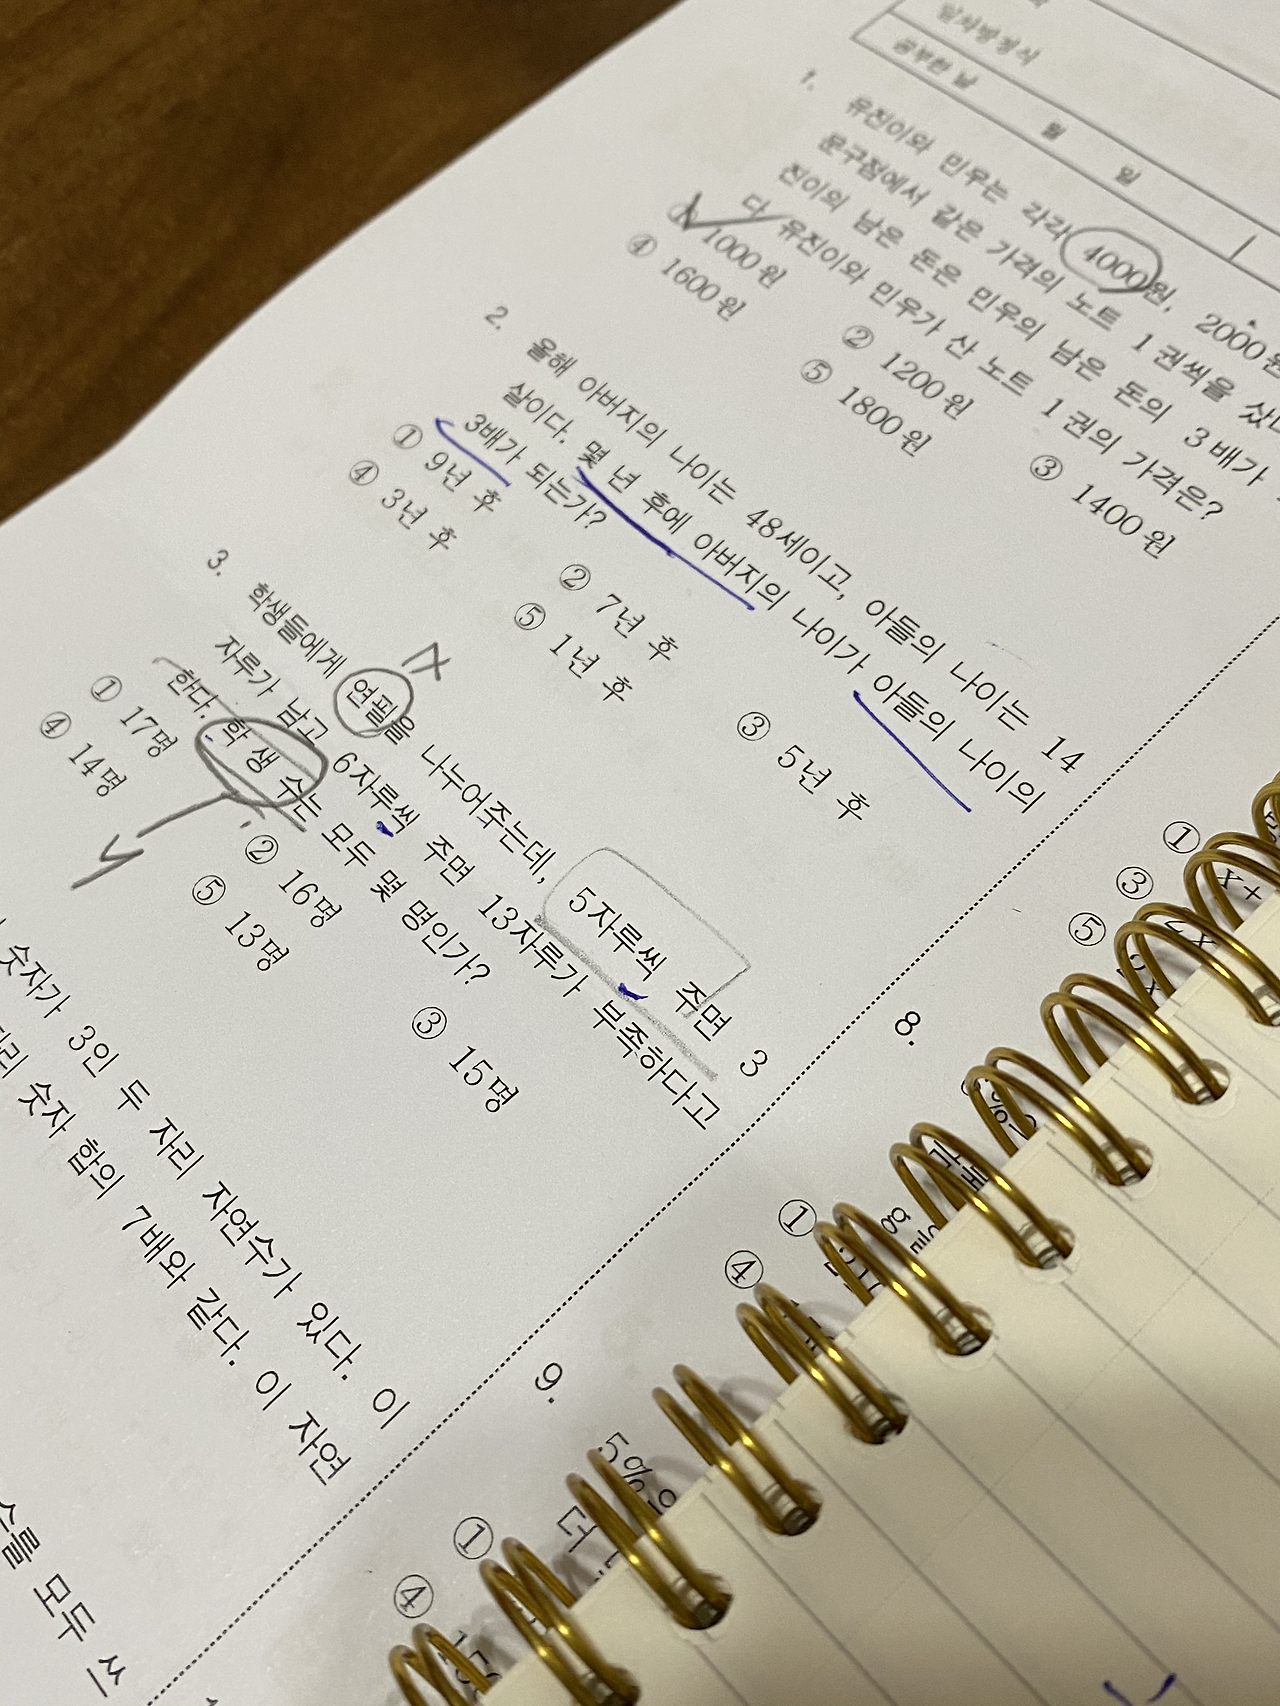 일차방정식
공부한 날 월 일
1. 유진이와 민우는 각각 4000원, 2000원
문구점에서 같은 가격의 노트 1권씩을 샀
진이의 남은 돈은 민우의 남은 돈의 3배가
다. 유진이와 민우가 산 노트 1권의 가격은?
① 1000원 ② 1200원 ③ 1400원
④ 1600원 ⑤ 1800원
2. 올해 아버지의 나이는 48세이고, 아들의 나이는 14
살이다. 몇 년 후에 아버지의 나이가 아들의 나이의
3배가 되는가?
① 9년 후 ② 7년 후 ③ 5년 후
④ 3년 후 ⑤ 1년 후
3. 학생들에게 연필을 나누어주는데, 5자루씩 주면 3
자루가 남고 6자루씩 주면 13자루가 부족하다고
한다. 학생 수는 모두 몇 명인가?
x
y
① 17명 ② 16명 ③ 15명
④ 14명 ⑤ 13명
숫자가 3인 두 자리 자연수가 있다. 이
숫자 합의 7배와 같다. 이 자연
모두 쓰
① x+
③ 2x
⑤
8.
g
①
④
9.
5%
더
①
④